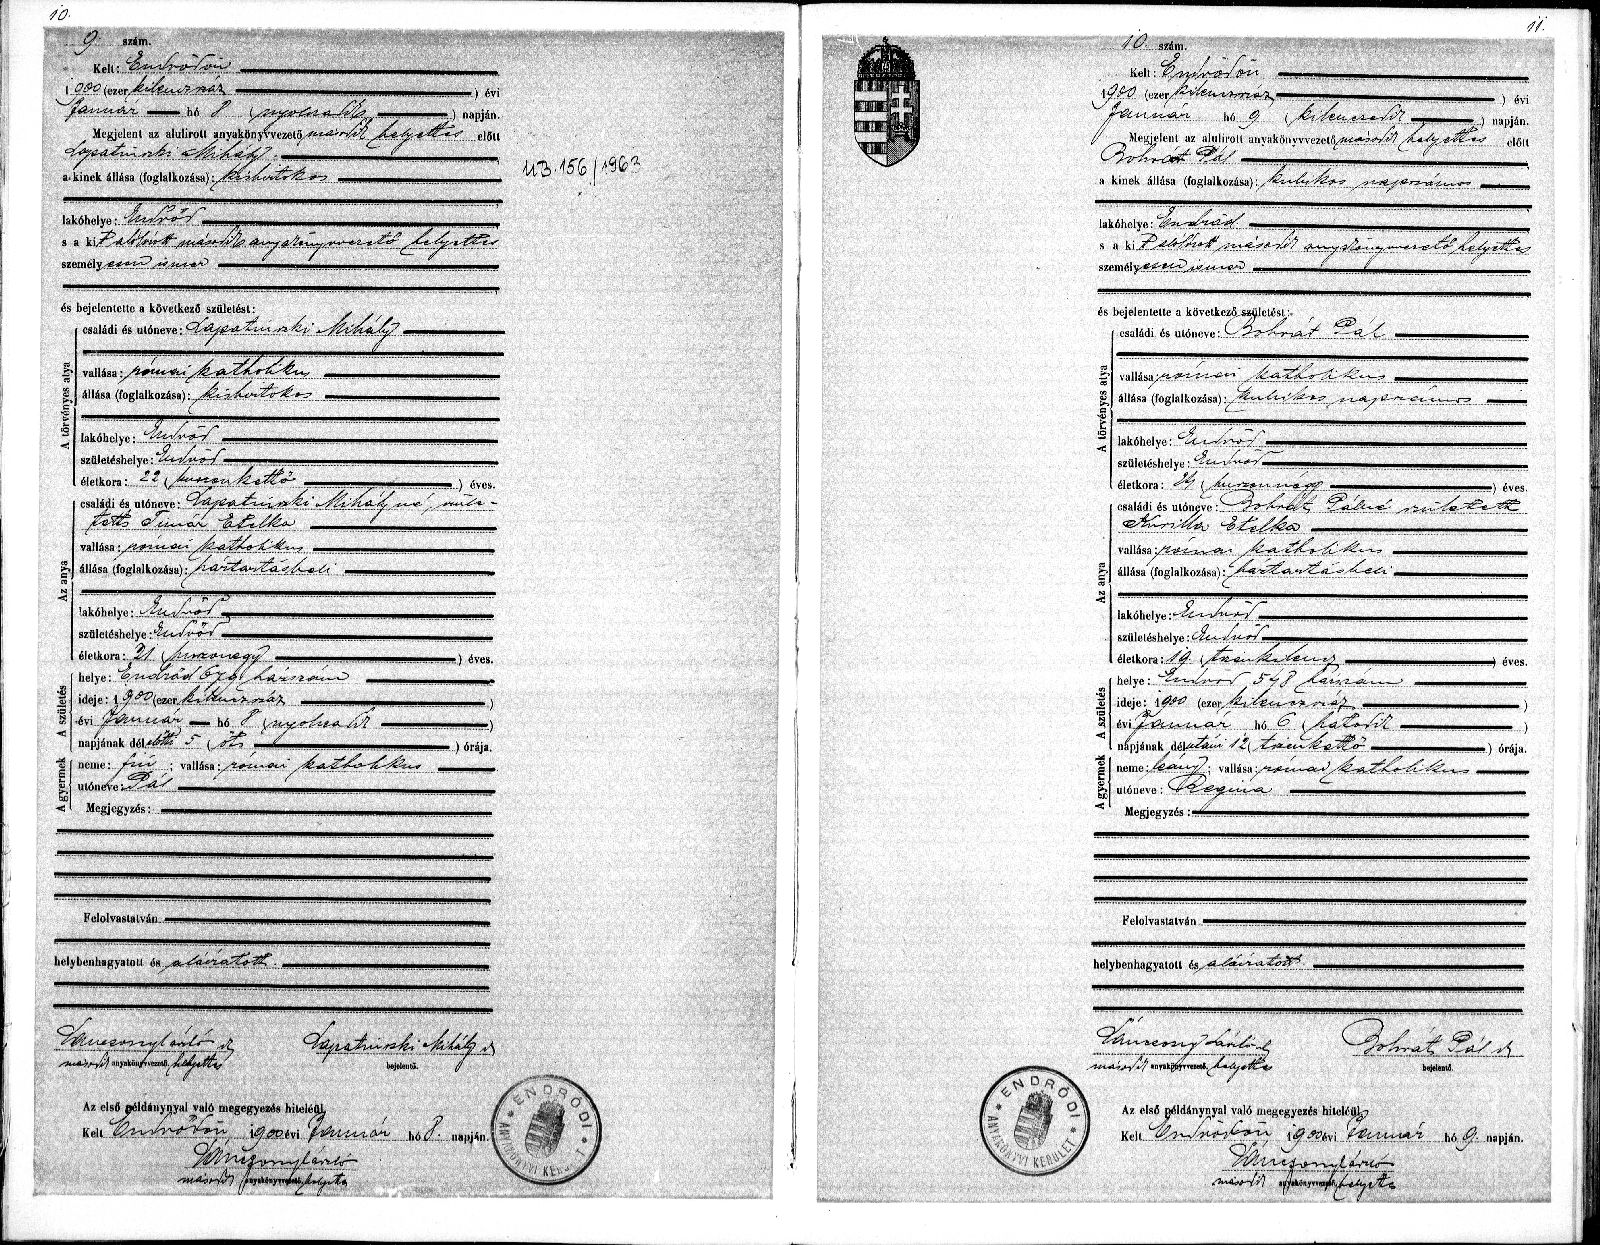 10.
9. szám.
Kelt: Endrődön
1900 (ezer kilenczszáz ) évi
Január hó 8 (nyolcadik ) napján.
Megjelent az alulirott anyakönyvvezető második helyettes előtt
Lapatinszki Mihály
a kinek állása (foglalkozása): kisbirtokos
lakóhelye: Endrőd
s a kit alólirott második anyakönyvvezető helyettes
személyesen ismer
és bejelentette a következő születést:
A törvényes atya
családi és utóneve: Lapatinszki Mihály
vallása: római katholikus
állása (foglalkozása): kisbirtokos
lakóhelye: Endrőd
születéshelye: Endrőd
életkora: 22 (huszonkettő ) éves.
Az anya
családi és utóneve: Lapatinszki Mihályné, szüle-
tett Timár Etelka
vallása: római katholikus
állása (foglalkozása): háztartásbeli
lakóhelye: Endrőd
születéshelye: Endrőd
életkora: 21 (huszonegy ) éves.
A születés
helye: Endrőd házszám
ideje: 1900 (ezer kilenczszáz )
évi Január hó 8 (nyolcadik )
napjának délelőtti 5 (öt ) órája.
A gyermek
neme: fiú ; vallása: római katholikus
utóneve: Pál
Megjegyzés:
Felolvastatván
helybenhagyatott és aláiratott.
Lánczony László h
második anyakönyvvezető helyettes
Lapatinszki Mihály
bejelentő.
Az első példánynyal való megegyezés hiteléül
Kelt Endrődön, 1900 évi Január hó 8. napján.
Lánczony László
második anyakönyvvezető helyettes
ENDRŐDI ANYAKÖNYVI KERÜLET
UB. 156/1963
11.
10. szám.
Kelt: Endrődön
1900 (ezer kilenczszáz ) évi
Január hó 9 (kilenczedik ) napján.
Megjelent az alulirott anyakönyvvezető második helyettes előtt
Bohrát Pál
a kinek állása (foglalkozása): kubikos napszámos
lakóhelye: Endrőd
s a kit alólirott második anyakönyvvezető helyettes
személyesen ismer
és bejelentette a következő születést:
A törvényes atya
családi és utóneve: Bohrát Pál
vallása: római katholikus
állása (foglalkozása): kubikos napszámos
lakóhelye: Endrőd
születéshelye: Endrőd
életkora: 24 (huszonnégy ) éves.
Az anya
családi és utóneve: Bohrát Pálné született
Kurilla Etelka
vallása: római katholikus
állása (foglalkozása): háztartásbeli
lakóhelye: Endrőd
születéshelye: Endrőd
életkora: 19. (tizenkilencz ) éves.
A születés
helye: Endrőd 548 házszám
ideje: 1900 (ezer kilenczszáz )
évi Január hó 6 (hatodik )
napjának délutáni 12 (tizenkettő ) órája.
A gyermek
neme: leány; vallása: római katholikus
utóneve: Regina
Megjegyzés:
Felolvastatván
helybenhagyatott és aláiratott.
Lánczony László h
második anyakönyvvezető helyettes
Bohrát Pál
bejelentő.
Az első példánynyal való megegyezés hiteléül
Kelt Endrődön 1900 évi Január hó 9. napján.
Lánczony László
második anyakönyvvezető helyettes
ENDRŐDI ANYAKÖNYVI KERÜLET